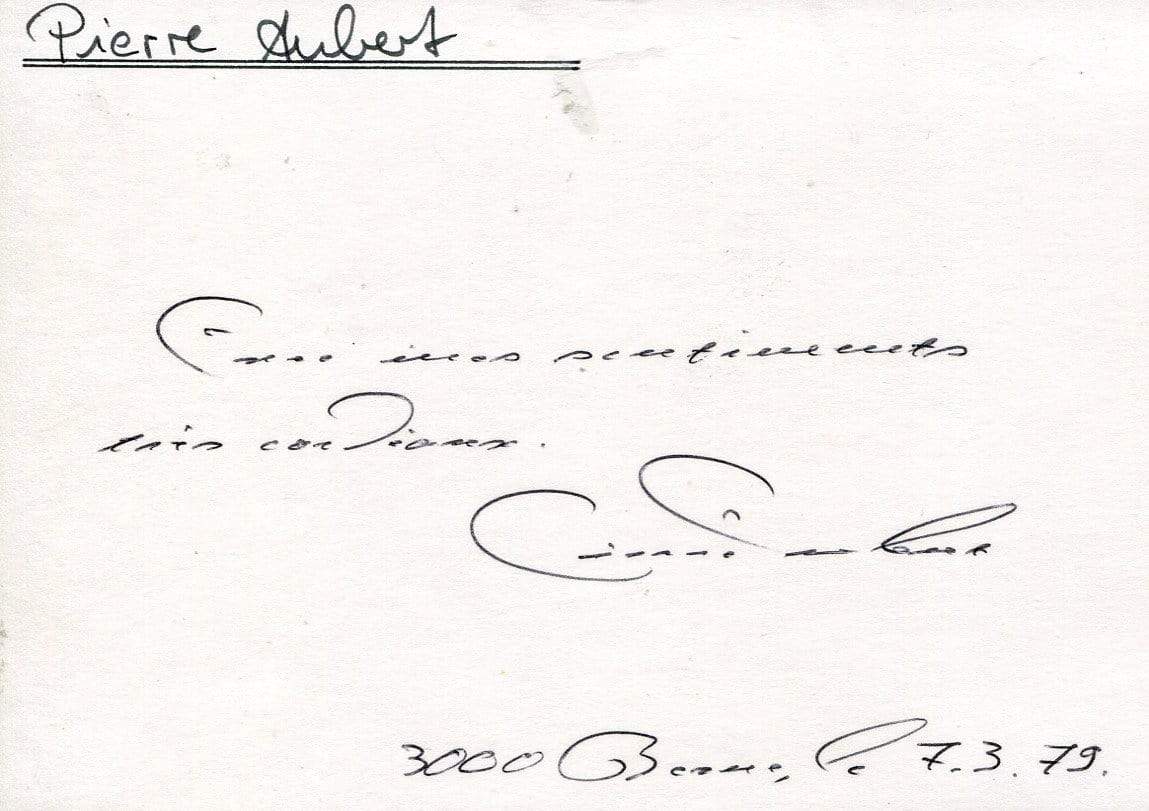 Pierre Aubert
Avec mes sentiments
très cordiaux.
Pierre Aubert
3000 Berne, le 7.3.79.